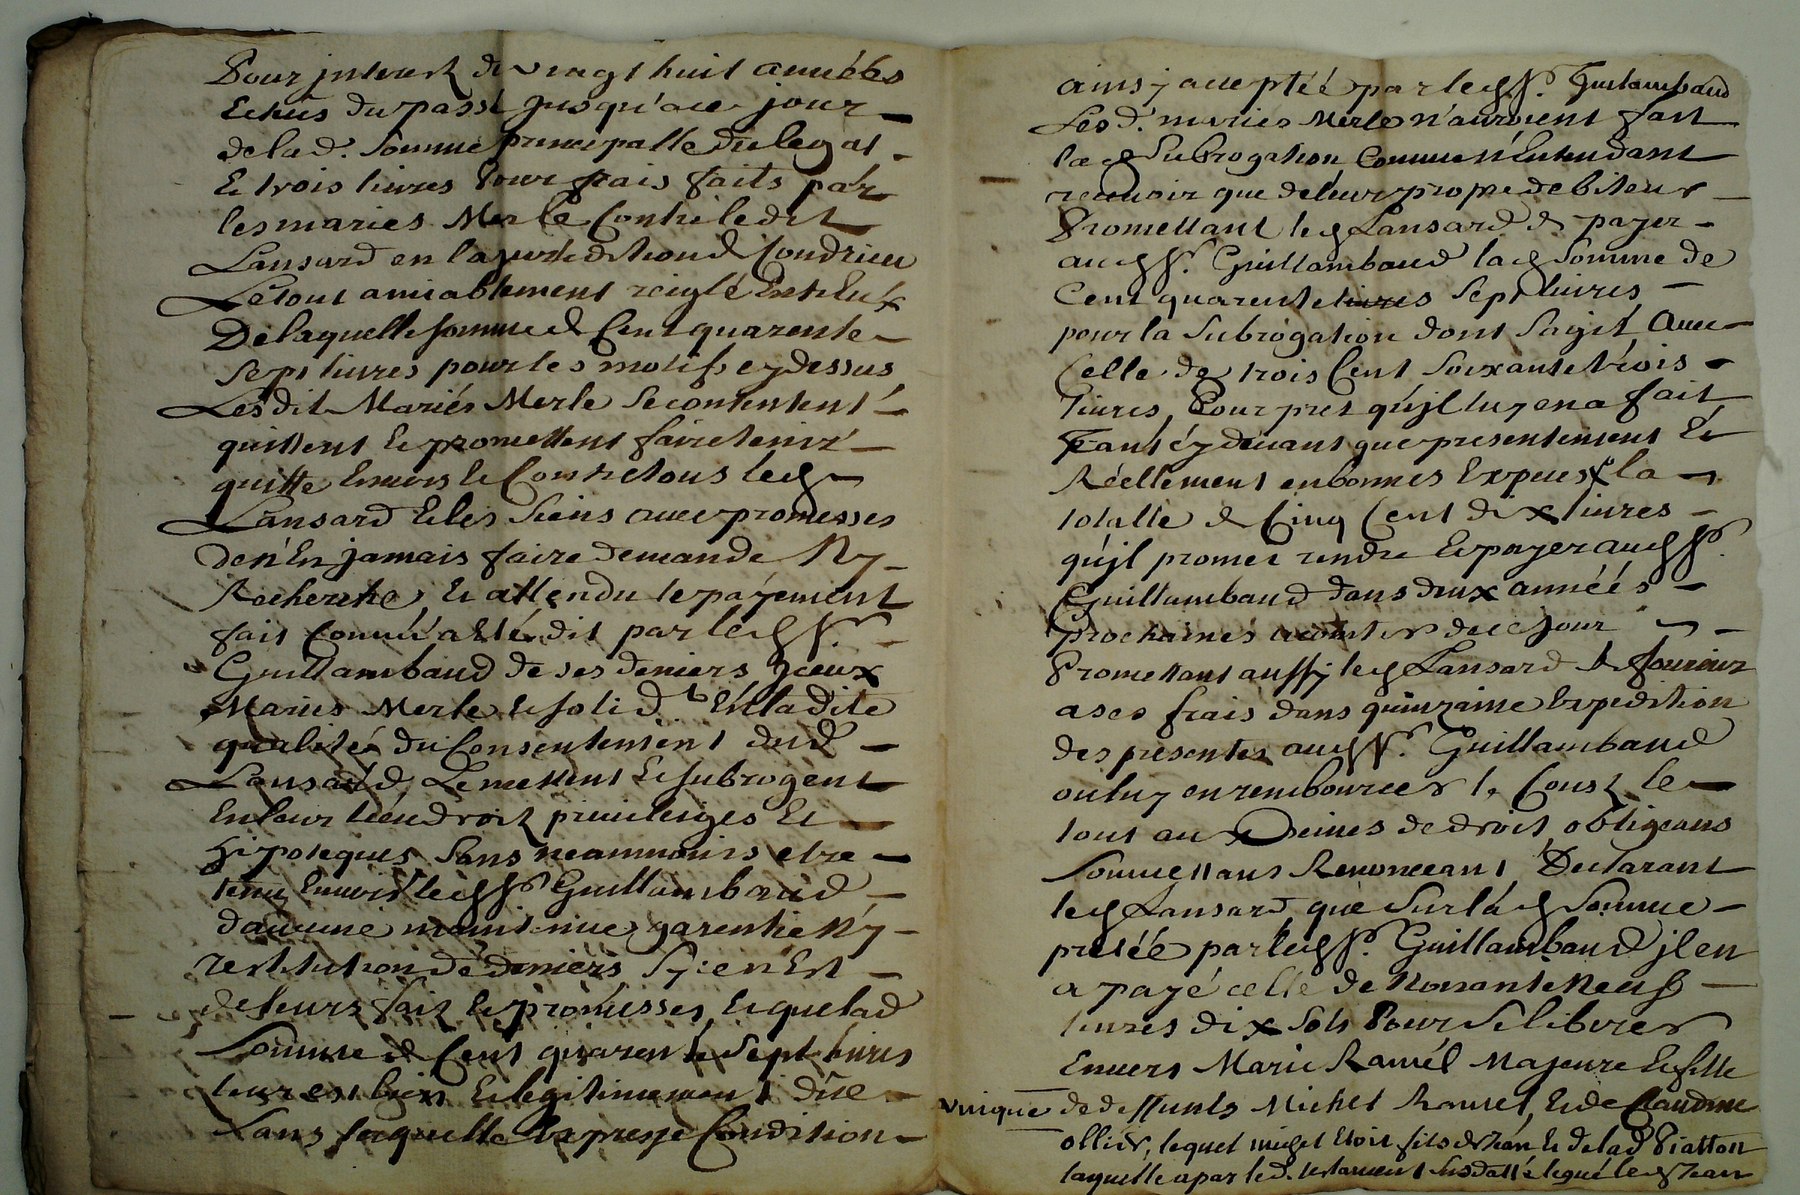 Pour jnterest de vingt huit années
Echûs du passé jusqu'a ce jour
de lad. somme principalle du legat
Et trois livres pour frais faits par
les maries Merle Contre ledit
Lansard en la jurisdiction de Condrieu
Le tout amiablement reiglé Entr'Eux
De laquelle somme de Cent quarente
sept livres pour les motifs cy dessus
Lesdit Mariés Merle se contentent
quittent Et promettent faire tenir
quitte Envers Et Contre tous led
Lansard Et les siens avec promesses
de n'En jamais faire demande Ny
Recherche, Et attendu le payement
fait comme a Eté dit par led Sr.
Guillambaud de ses deniers yceux
Maries Merle Et solid.t En ladite
qualité du Consentement dud
Lansard, Le mettent Et subrogent
En leur lieu droit privileiges Et
hipoteques sans neammoins etre
tenu Envers led Sr Guillambaud
d'aucune maintenue garentie Ny
restitution de deniers sy ce n'Est
de leurs fait Et promesses, Et que lad
Somme de Cent quarente sept livres
leur est bien Et legitimement düe
sans laquelle Expresse Condition
ainsy acceptée par led Sr. Guilambaud
Lesd. maries Merle n'auroient fait
la d Subrogation Comme n'Entendant
recevoir que de leur propre debiteur
Promettant led Lansard de payer
aud Sr. Guillambaud la d somme de
Cent quarente livres sept livres
pour la subrogation dont s'agit avec
Celle de trois Cent soixante trois
livres, Pour pret qu'jl luy en a fait
Tant cy devant que presentement Et
Réellement en bonnes Especes la
totalle de Cinq Cent dix livres
qu'jl promet rendre Et payer aud Sr.
Guillambaud dans deux années
prochaines a conter de ce jour
Promettant aussy led Lansard de fournir
a ses frais dans quinzaine Expedition
des presentes aud Sr. Guillambaud
ou luy en rembourcer le Coust le
tout aux Peines de droit, obligeans
Soumettans Renonceant, Declarant
led Lansard que sur la d Somme
pretée par led Sr. Guillambaud jl en
a payé celle de Nonante Neuf
livres dix sols Pour se liberer
Envers Marie Ramel Majeure Et fille
vnique de deffunts Michel Ramel, Et de Claudine
ollier, lequel michel Etoit fils de Jean Et de lad Piatton
laquelle a par led. testament susdatté legué led Jean